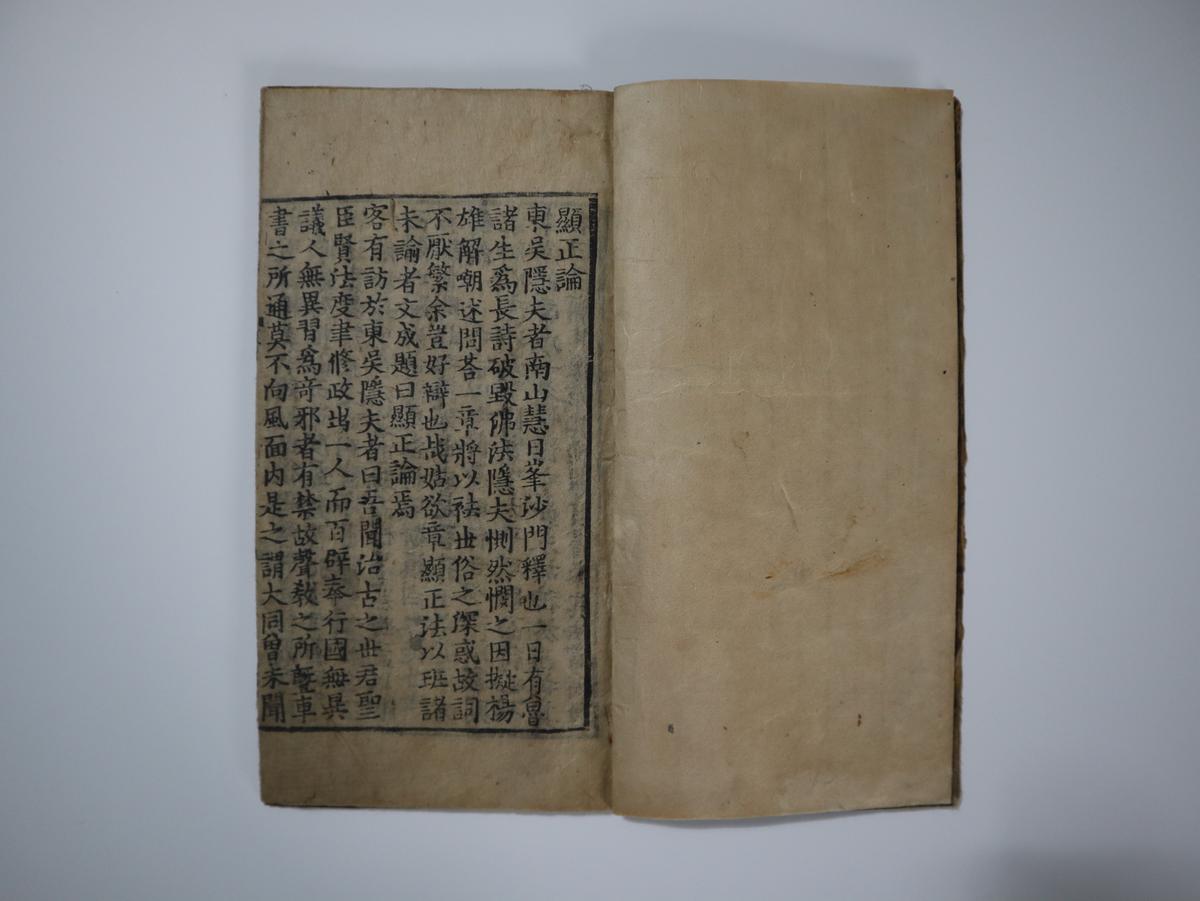 顯正論
東吳隱夫者南山慧日峯沙門釋也一日有魯
諸生爲長詩破毀佛法隱夫惻然憫之因擬楊
雄解嘲述問荅一章將以袪世俗之深惑故詞
不厭繁余豈好辯也哉姑欲章顯正法以班諸
未論者文成題曰顯正論焉
客有訪於東吳隱夫者曰吾聞治古之世君聖
臣賢法度聿修政出一人而百辟奉行國無異
議人無異習爲竒邪者有禁故聲教之所曁車
書之所通莫不向風面内是之謂大同曾未聞